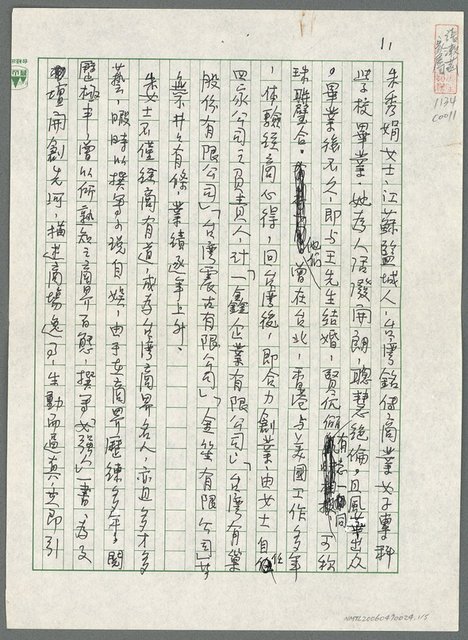 11
1134
C0011
朱秀娟女士,江蘇鹽城人,台灣銘傳商業女子專科
學校畢業,她為人活潑開朗,聰慧絕倫,且風華出眾
。畢業後不久,即與王先生結婚,賢伉儷有志一同,可称
珠聯璧合。他們曾在台北,香港与美國工作多年
,体驗經商心得,回台灣後,即合力創業,由女士自任
四家公司之負責人,計「鑫企業有限公司」「台灣有巢
股份有限公司」「台灣震古有限公司」「金笙有限公司」皆
業井井有條,業績逐年上升。
朱女士不僅經商有道,成為台灣商界名人,亦且多才多
藝,暇時以撰寫小說自娛,由于在商界歷練多年,閱
歷極丰,曾以所熟知之商界百態,撰寫女強人一書,為文
壇開創先河,描述商場逸事,生動而逼真,書即引
NMTL20060490024.1/5